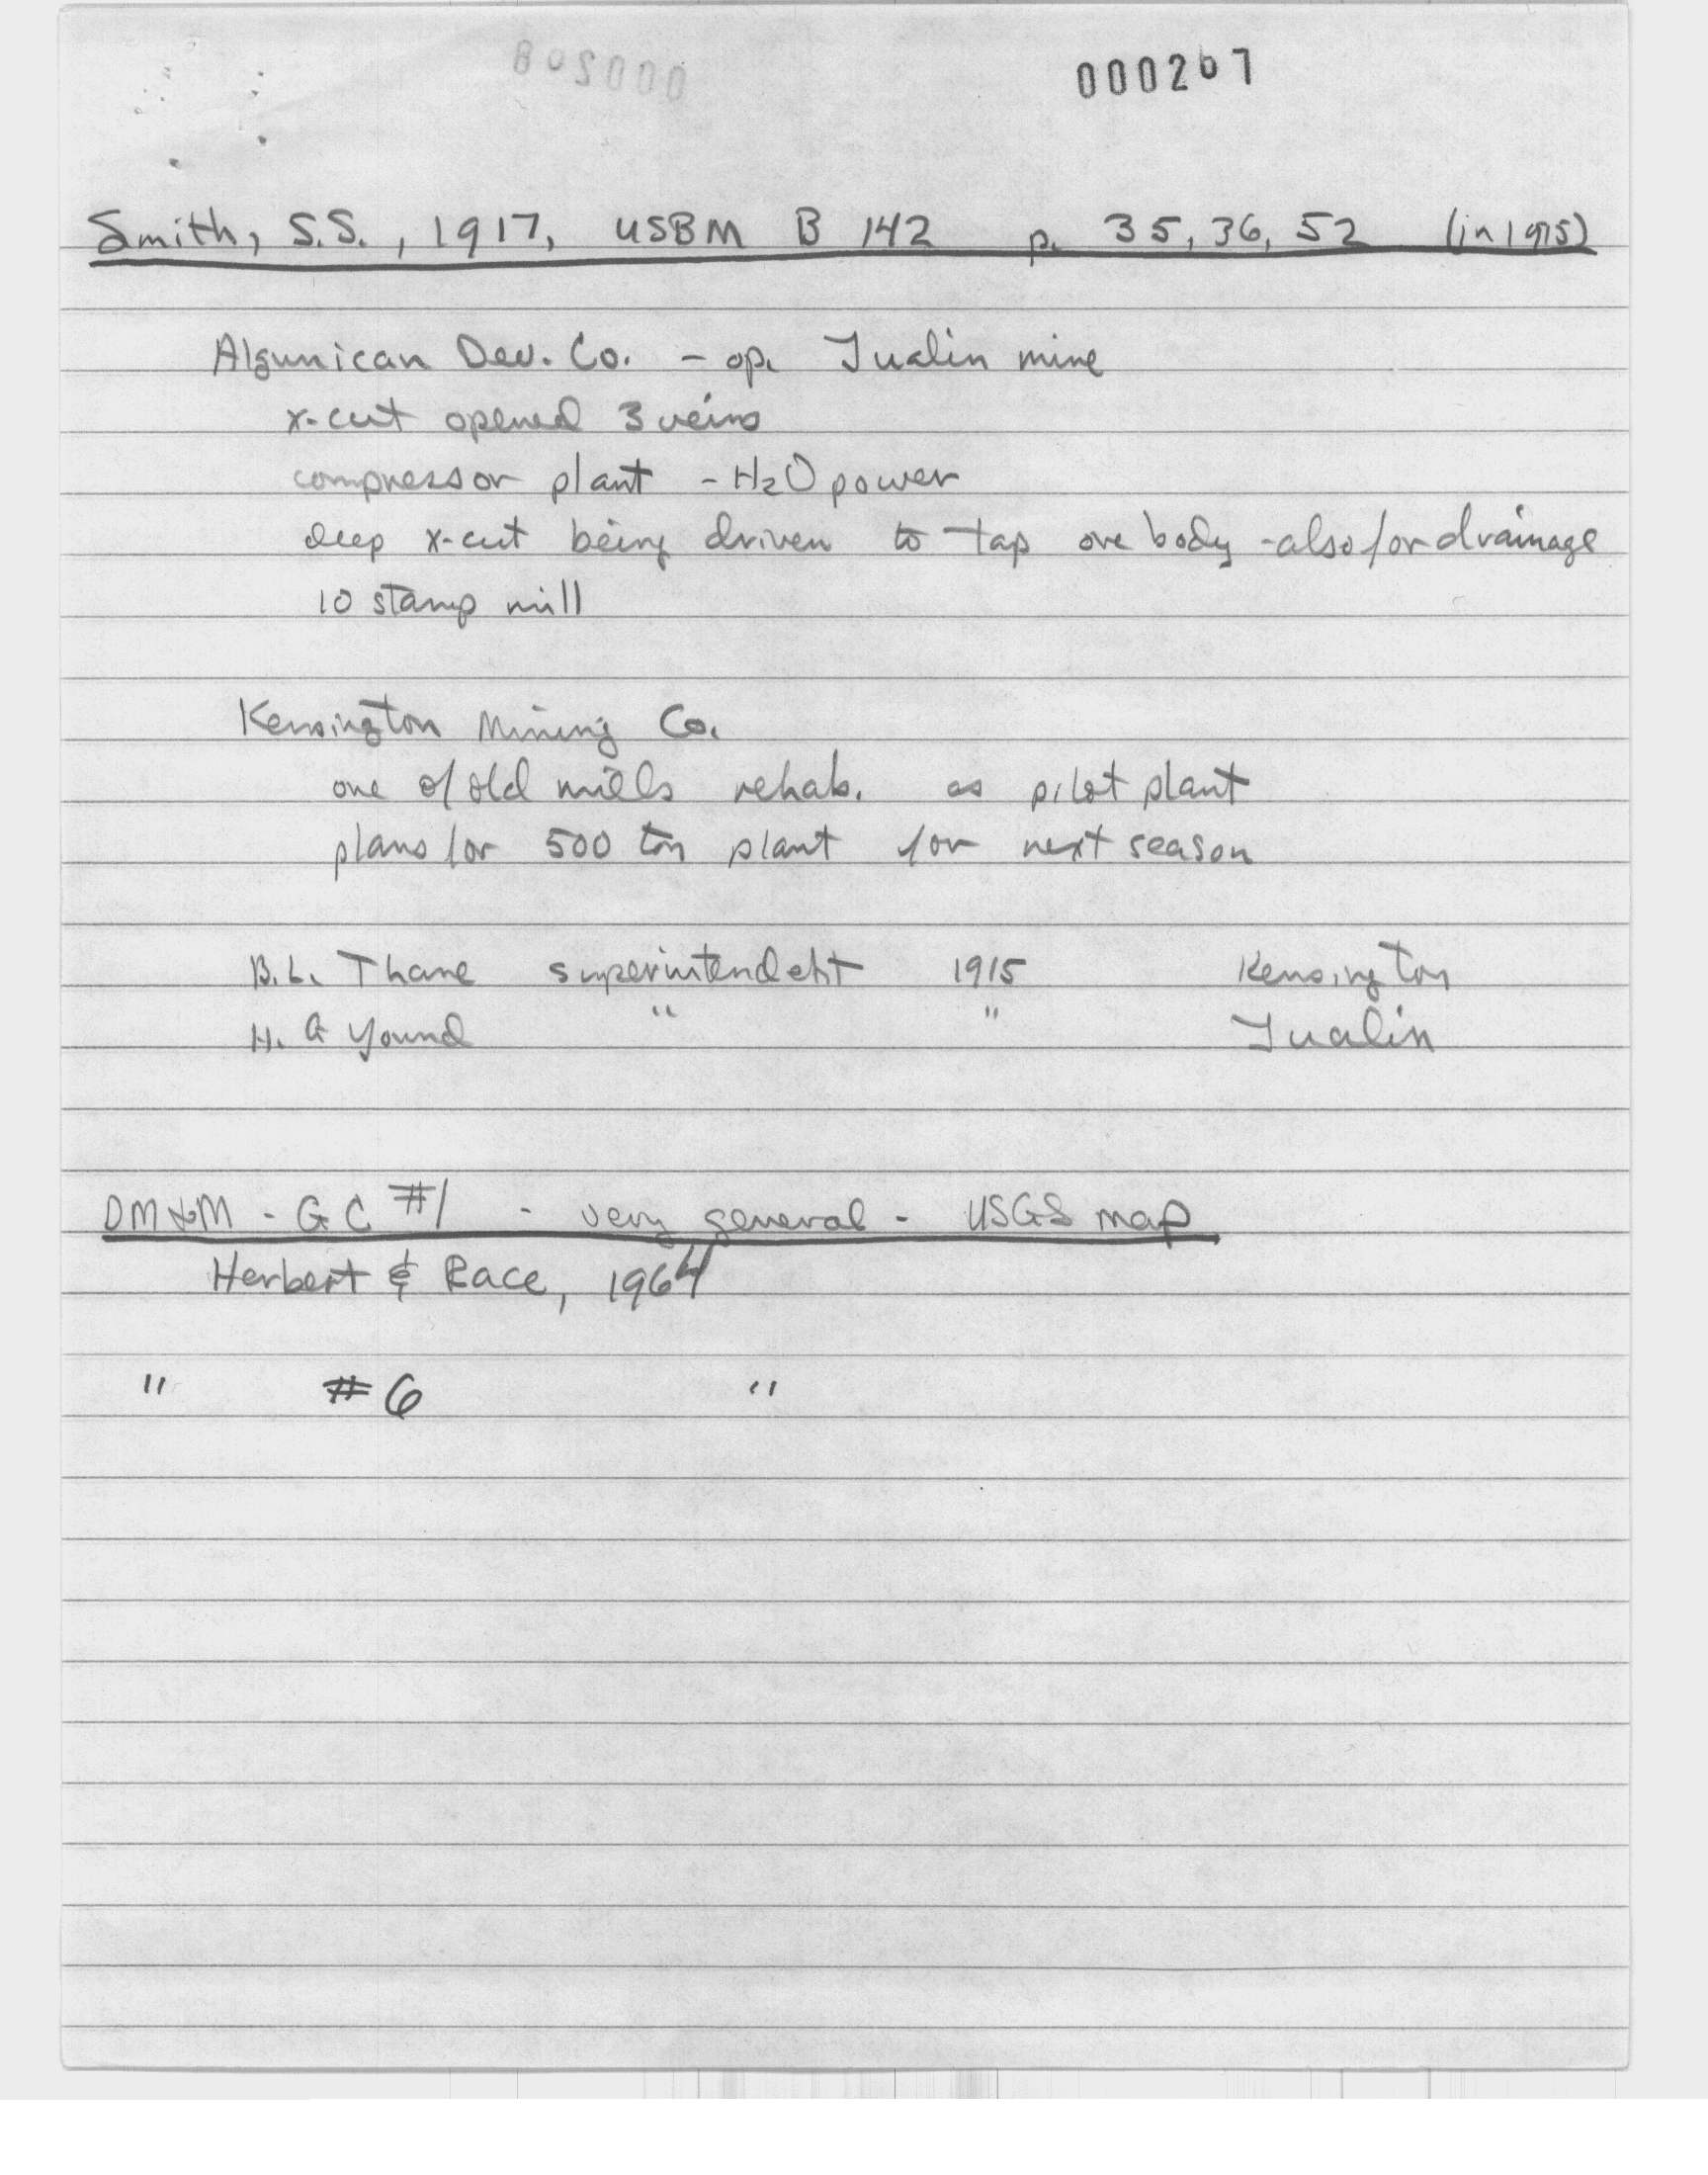 000207
Smith, S.S., 1917, USBM B 142 p. 35, 36, 52 (in 1915)
Algunican Dev. Co. - op. Jualin mine
x-cut opened 3 veins
compressor plant - H2O power
deep x-cut being driven to tap ore body - also for drainage
10 stamp mill
Kensington Mining Co.
one of old mills rehab. as pilot plant
plans for 500 ton plant for next season
B.L. Thane superintendent 1915 Kensington
H. G Yound " " Jualin
DM&M - GC #1 - very general - USGS map
Herbert & Race, 1964
" #6 "